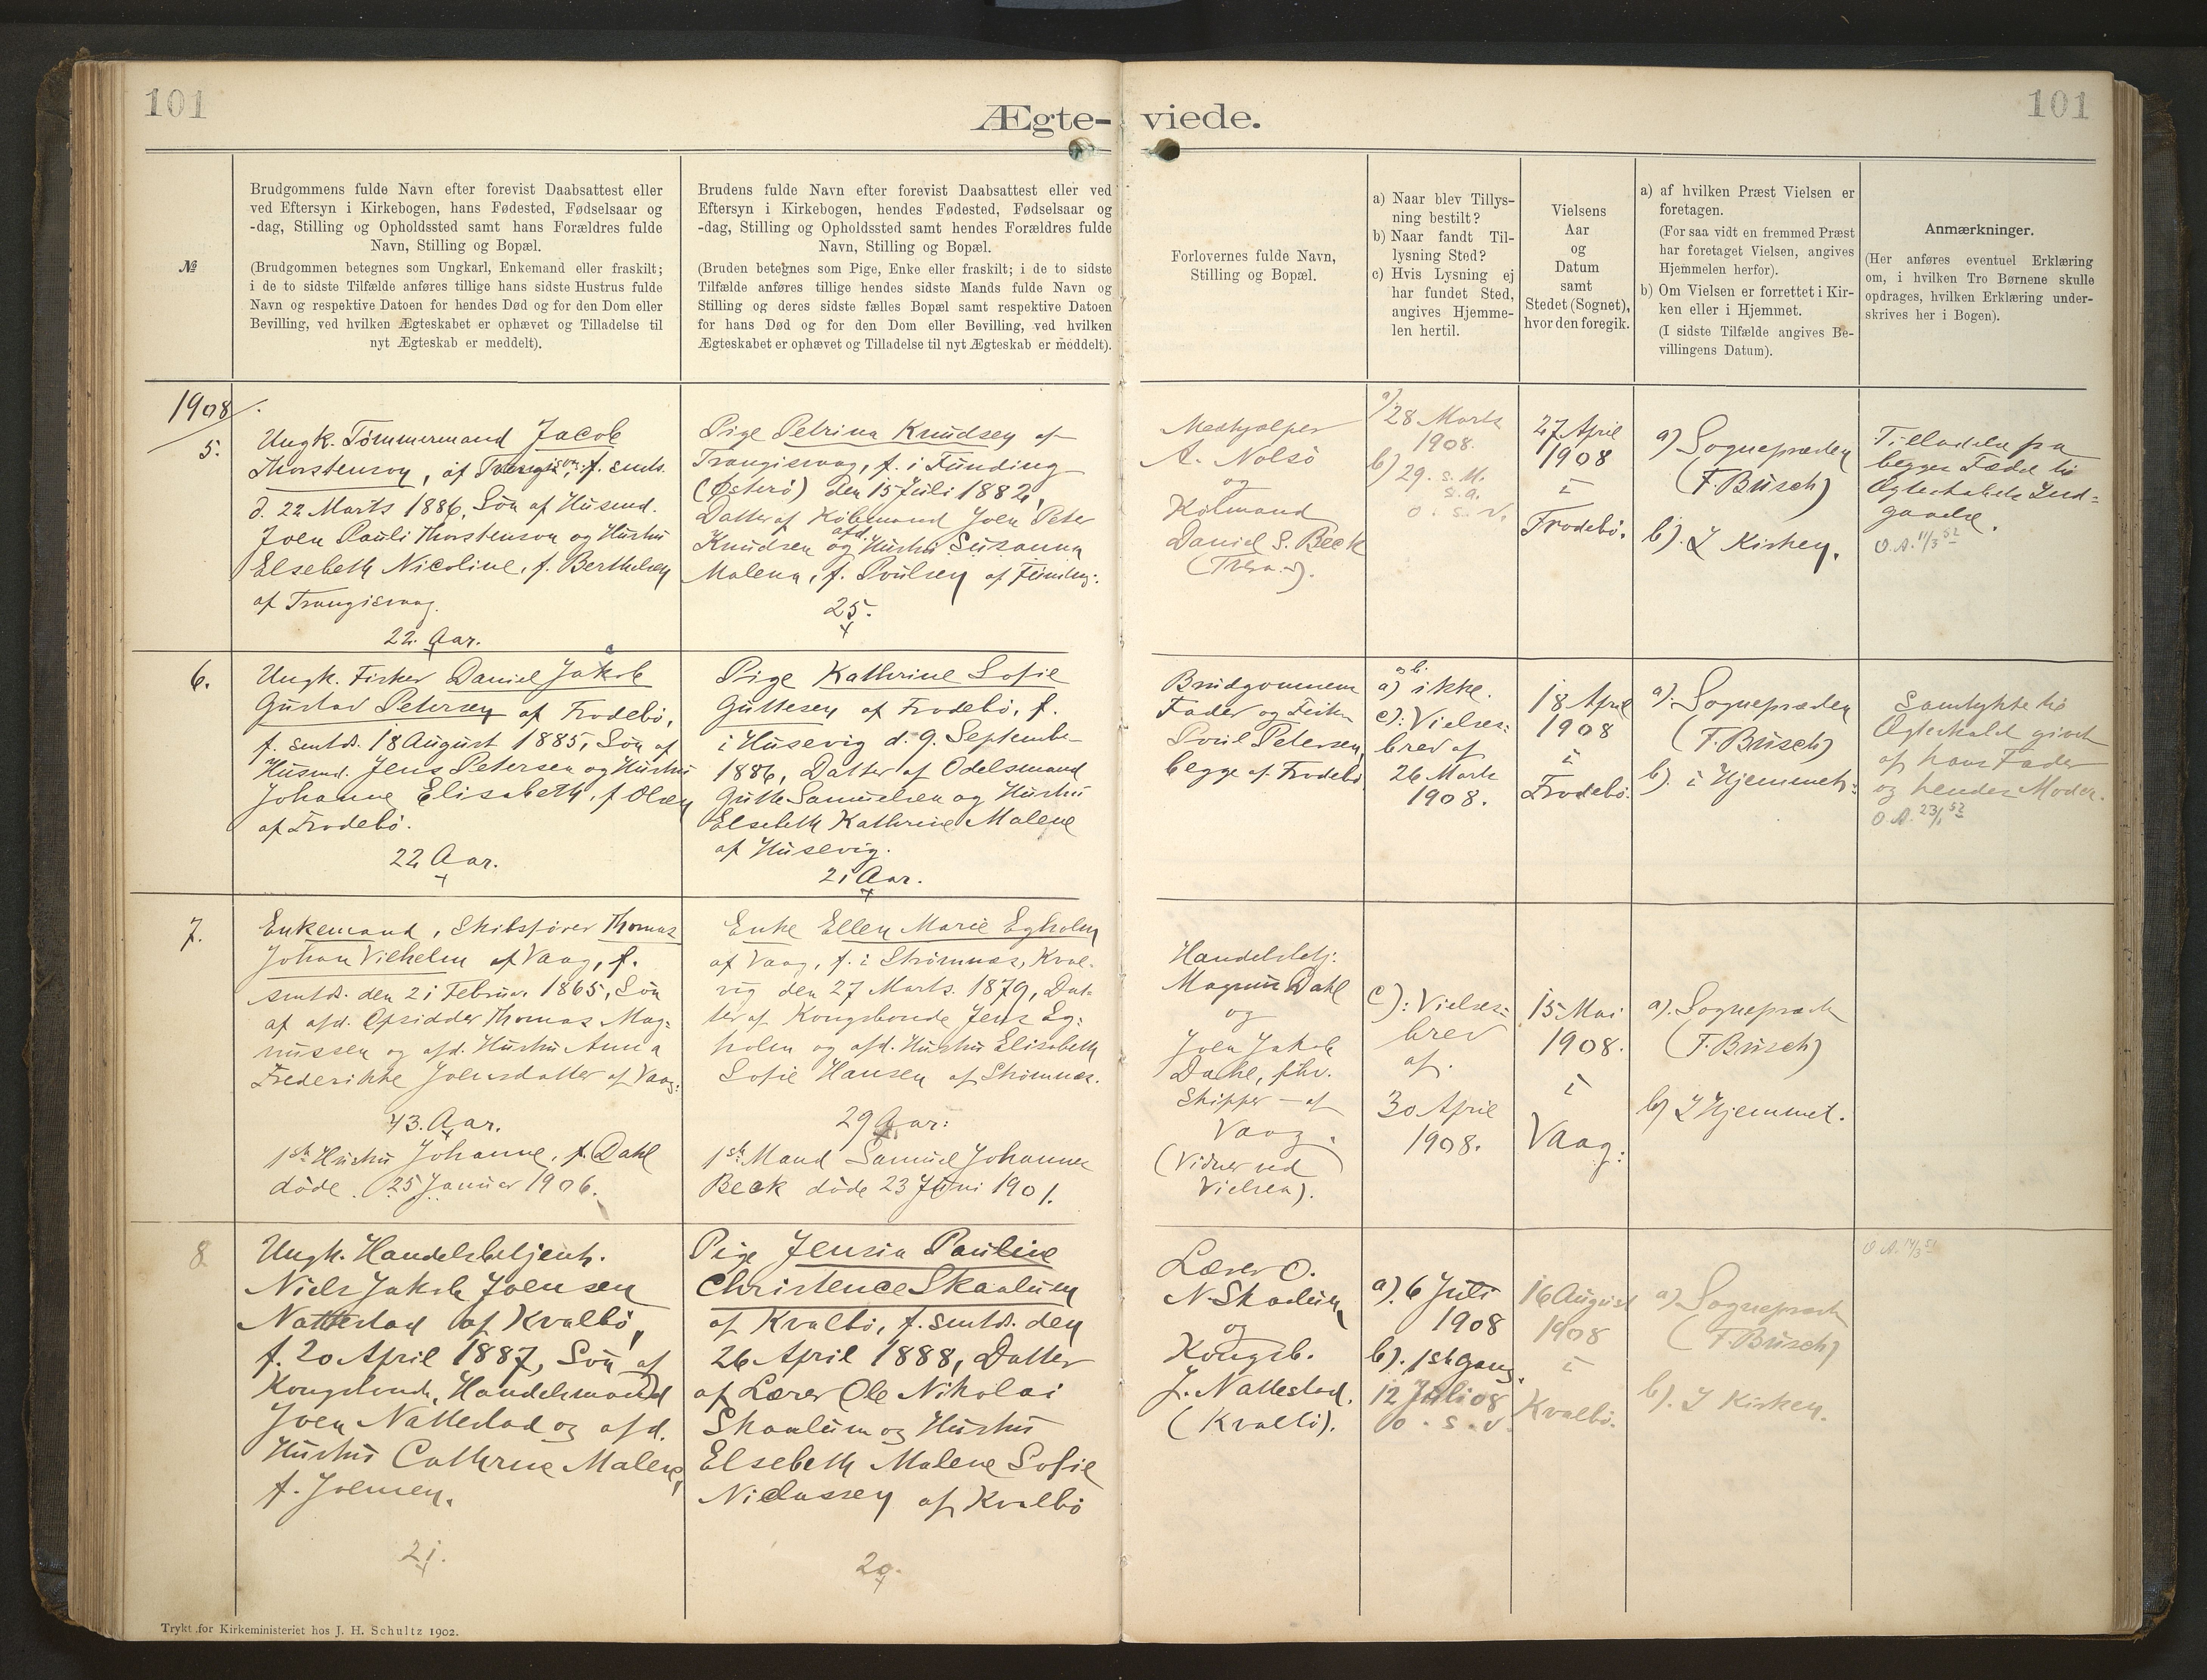 101
Ægte-
viede.
101
№
Brudgommens fulde Navn efter forevist Daabsattest eller
ved Eftersyn i Kirkebogen, hans Fødested, Fødselsaar og
-dag, Stilling og Opholdssted samt hans Forældres fulde
Navn, Stilling og Bopæl.
(Brudgommen betegnes som Ungkarl, Enkemand eller fraskilt;
i de to sidste Tilfælde anføres tillige hans sidste Hustrus fulde
Navn og respektive Datoen for hendes Død og for den Dom eller
Bevilling, ved hvilken Ægteskabet er ophævet og Tilladelse til
nyt Ægteskab er meddelt).
Brudens fulde Navn efter forevist Daabsattest eller ved
Eftersyn i Kirkebogen, hendes Fødested, Fødselsaar og
-dag, Stilling og Opholdssted samt hendes Forældres fulde
Navn, Stilling og Bopæl.
(Bruden betegnes som Pige, Enke eller fraskilt; i de to sidste
Tilfælde anføres tillige hendes sidste Mands fulde Navn og
Stilling og deres sidste fælles Bopæl samt respektive Datoen
for hans Død og for den Dom eller Bevilling, ved hvilken
Ægteskabet er ophævet og Tilladelse til nyt Ægteskab er meddelt).
Forlovernes fulde Navn,
Stilling og Bopæl.
a) Naar blev Tillys-
ning bestilt?
b) Naar fandt Til-
lysning Sted?
c) Hvis Lysning ej
har fundet Sted,
angives Hjemme-
len hertil.
Vielsens
Aar
og
Datum
samt
Stedet (Sognet),
hvor den foregik.
a) af hvilken Præst Vielsen er
foretagen.
(For saa vidt en fremmed Præst
har foretaget Vielsen, angives
Hjemmelen herfor).
b) Om Vielsen er forrettet i Kir-
ken eller i Hjemmet.
(I sidste Tilfælde angives Be-
villingens Datum).
Anmærkninger.
(Her anføres eventuel Erklæring
om, i hvilken Tro Børnene skulle
opdrages, hvilken Erklæring under-
skrives her i Bogen).
1908
5.
Ungk. Tømmermand Jacob
Thorstenson, af Trangisv., f. smts.
d. 22 Marts 1886, Søn af Husmd.
Joen Pauli Thorstenson og Hustru
Elsebeth Nicoline, f. Berthelsen
af Trangisvaag.
22 Aar.
Pige Petrina Knudsen af
Trangisvaag, f. i Funding
(Østerø) den 15 Juli 1882,
Datter af Købmand Joen Peter
Knudsen og afd. Hustru Susanna
Malena, f. Poulsen af Funding.
25.
Medhjælper
A. Nolsø
og
Købmand
Daniel S. Beck
a) 28 Marts
1908.
b) 29. s. M.
s. a.
o. s. v.
27 April
1908
i
Frodebø.
a) Sognepræsten
(F. Busch)
b). I Kirken.
Tilladelse fra
begges Fædre til
Ægteskabets Ind-
gaaelse.
O.A. 11/3 52
6.
Ungk. Fisker Daniel Jakob
Gustav Petersen af Frodebø,
f. smtds. 18 August 1885, Søn af
Husmd. Jens Petersen og Hustru
Johanne Elisabeth, f. Olsen
af Frodebø.
22 Aar.
Pige Kathrine Sofie
Guttesen af Frodebø, f.
i Husevig d. 9. September
1886, Datter af Odelsmand
Gutte Samuelsen og Hustru
Elsebeth Kathrine Malene
af Husevig.
21 Aar.
Brudgommens
Fader og Fisker
Poul Petersen,
begge af Frodebø.
a) og b. ikke.
c): Vielses-
brev af
26 Marts
1908.
18 April
1908
i
Frodebø.
a). Sognepræsten
(F. Busch)
b). i Hjemmet.
Samtykke til
Ægteskabet givet
af hans Fader
og hendes Moder.
O.A. 23/1 52
7.
Enkemand, Skibsfører Thomas
Johan Vilhelm af Vaag, f.
smtds. den 21 Februar 1865, Søn
af afd. Opsidder Thomas Mag-
nussen og afd. Hustru Anna
Frederikke Joensdatter af Vaag.
43. Aar.
1ste Hustru Johanne, f. Dahl
døde 25 Januar 1906.
Enke Ellen Marie Egholm
af Vaag, f. i Strømnæs, Kval-
vig den 27 Marts 1879, Dat-
ter af Kongsbonde Jens Eg-
holm og afd. Hustru Elisabeth
Sofie Hansen af Strømnæs.
29 Aar.
1ste Mand Samuel Johannes
Beck døde 23 Juni 1901.
Handelsbetj.
Magnus Dahl
og
Joen Jakob
Dahl, fhv.
Skipper - af
Vaag.
(Vidner ved
Vielsen).
c): Vielses-
brev
af.
30 April
1908.
15 Mai
1908.
i
Vaag.
a). Sognepræst
(F. Busch)
b) I Hjemmet.
8.
Ungk. Handelsbetjent.
Niels Jakob Joensen
Nattestad af Kvalbø,
f. 20 April 1887, Søn af
Kongsbonde, Handelsmand
Joen Nattestad og afd.
Hustru Cathrine Malene,
f. Joensen.
21.
Pige Jensia Pauline
Christence Skaalum
af Kvalbø, f. smtds. den
26 April 1888, Datter
af Lærer Ole Nikolai
Skaalum og Hustru
Elsebeth Malene Sofie
Niclassen af Kvalbø
20.
Lærer O.
N. Skaalum
og
Kongsb.
J. Nattestad.
(Kvalbø).
a). 6 Juli
1908
b). 1ste Gang
12 Juli 08
o. s. v.
16 August
1908
i
Kvalbø.
a) Sognepræst
(F. Busch)
b). I Kirken.
O.A. 14/3 51
Trykt for Kirkeministeriet hos J. H. Schultz 1902.